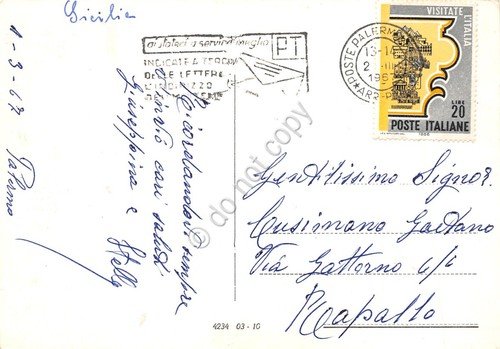 Sicilia
1-3-67
Palermo
aiutateci a servirvi meglio
PT
INDICATE A TERGO
DELLE LETTERE
L'INDIRIZZO
POSTE PALERMO
13-14
2 III
196
VISITATE L'ITALIA
LIRE
20
POSTE ITALIANE
1966
Ricordandovi sempre
v'invio cari saluti
Giuseppina e Stella
Gentilissimo Signor.
Cusimano Gaetano
Via Gattorno 6/6
Rapallo
4234 03-10
© do not copy